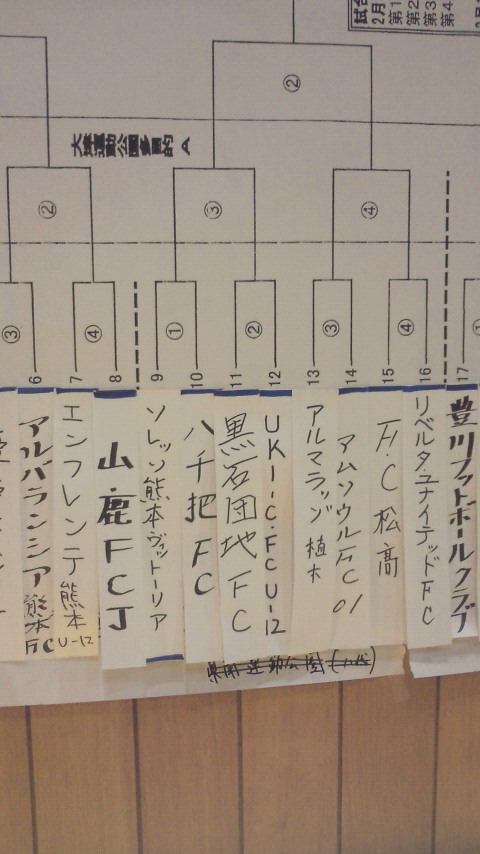 試合
2月
第1
第2
第3
第4
②
大津運動公園多目的 A
②
③
④
③
④
①
②
③
④
6
7
8
9
10
11
12
13
14
15
16
17
アルバランシア熊本FC
エンフレンテ熊本U-12
山鹿FCJ
ソレッソ熊本ヴィットーリア
八千把FC
黒石団地FC
UKI-C.FC U-12
アルマラッゾ植木
アムソウルFC01
F.C松高
リベルタ.ユナイテッドFC
豊川フットボールクラブ
県営運動公園(八代)